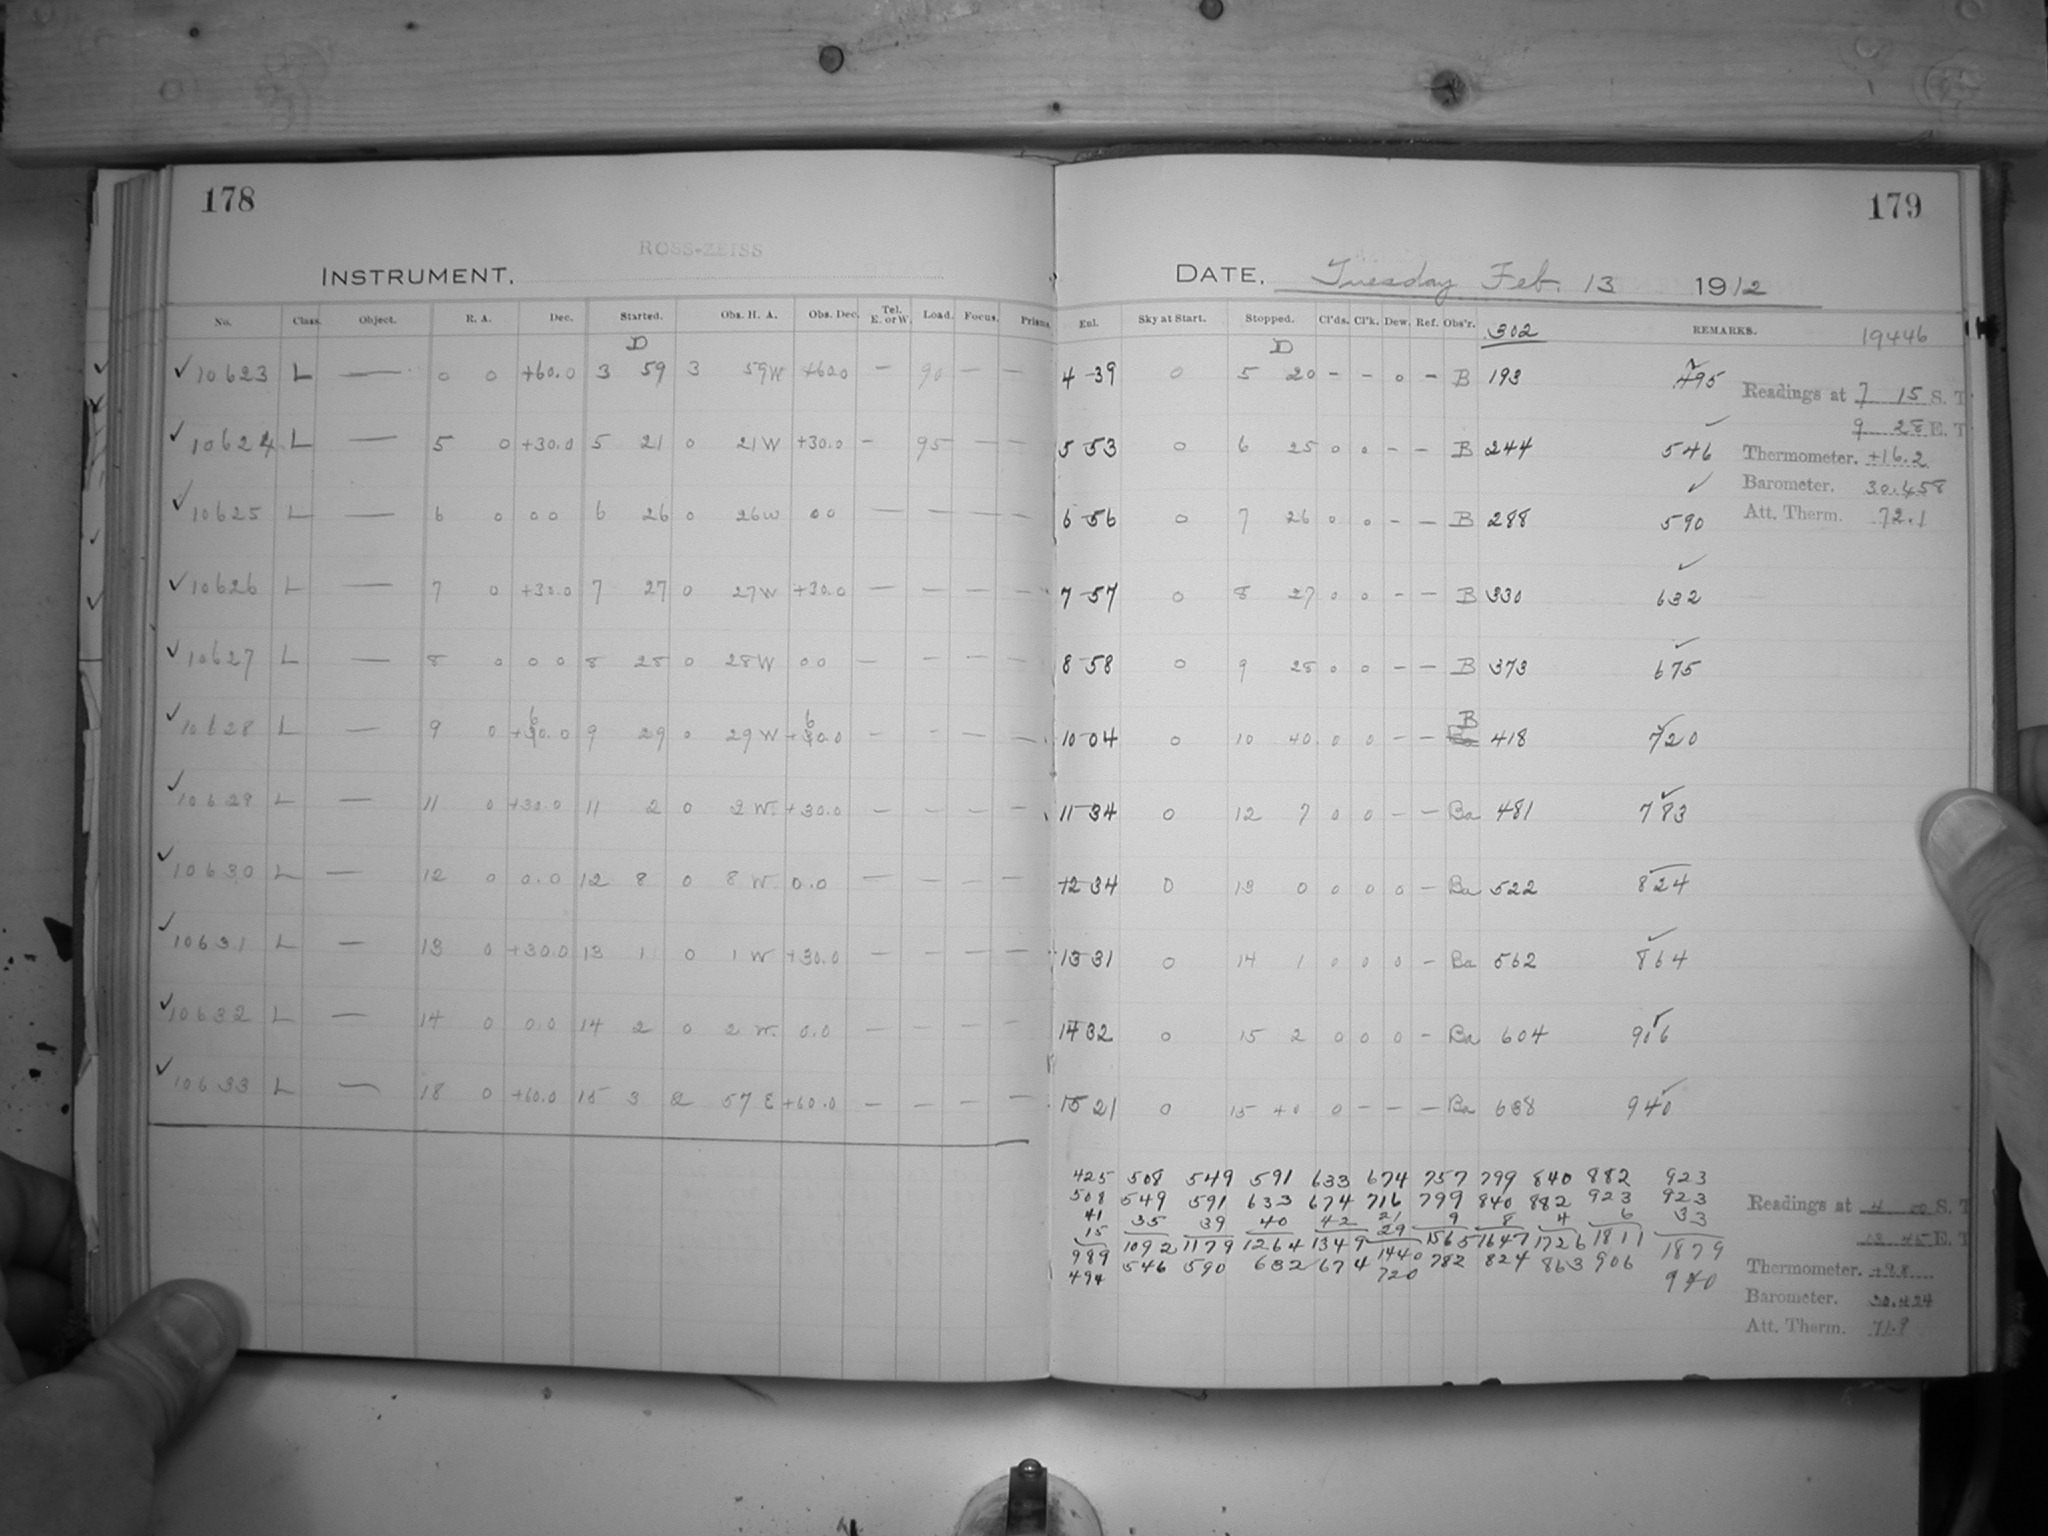 178
ROSS-ZEISS
INSTRUMENT.
No. Class. Object. R. A. Dec. Started. Obs. H. A. Obs. Dec. Tel. E. or W. Load. Focus. Prisms.
D
10623 L — 0 0 +60.0 3 59 3 59W +60.0 — 90 — —
10624 L — 5 0 +30.0 5 21 0 21W +30.0 - 95 — —
10625 L — 6 0 0 0 6 26 0 26W 0 0 — — — —
10626 L — 7 0 +30.0 7 27 0 27W +30.0 — — — —
10627 L — 8 0 0 0 8 28 0 28W 0 0 — — — —
10628 L — 9 0 +60.0 9 29 0 29W +60.0 — — — —
10629 L — 11 0 +30.0 11 2 0 2 W. +30.0 — — — —
10630 L — 12 0 0.0 12 8 0 8 W. 0.0 — — — —
10631 L — 13 0 +30.0 13 1 0 1 W +30.0 — — — —
10632 L — 14 0 0.0 14 2 0 2 W. 0.0 — — — —
10633 L — 18 0 +60.0 15 3 2 57 E +60.0 — — — —
179
DATE, Tuesday Feb. 13 1912
Enl. Sky at Start. Stopped. Cl'ds. Cl'k. Dew. Ref. Obs'r. 302 REMARKS. 19446
D
4 39 0 5 20 - - 0 - B 193 495
Readings at 7 15 S. T
9 28 E. T
5 53 0 6 25 0 0 - - B 244 546
Thermometer. +16.2
Barometer. 30.458
6 56 0 7 26 0 0 - - B 288 590
Att. Therm. 72.1
7 57 0 8 27 0 0 - - B 330 632
8 58 0 9 28 0 0 - - B 373 675
10 04 0 10 40 0 0 - - B 418 720
11 34 0 12 7 0 0 - - Ba 481 783
12 34 0 13 0 0 0 0 - Ba 522 824
13 31 0 14 1 0 0 0 - Ba 562 864
14 32 0 15 2 0 0 0 - Ba 604 906
15 21 0 15 40 0 - - - Ba 638 940
425 508 549 591 633 674 757 799 840 882 923
508 549 591 633 674 716 799 840 882 923 923
41 35 39 40 42 21 9 8 4 6 33
15 29
989 1092 1179 1264 1349 1440 1565 1647 1726 1811 1879
494 546 590 632 674 720 782 824 863 906 940
Readings at S. T
E. T
Thermometer.
Barometer. 30.424
Att. Therm. 71.9